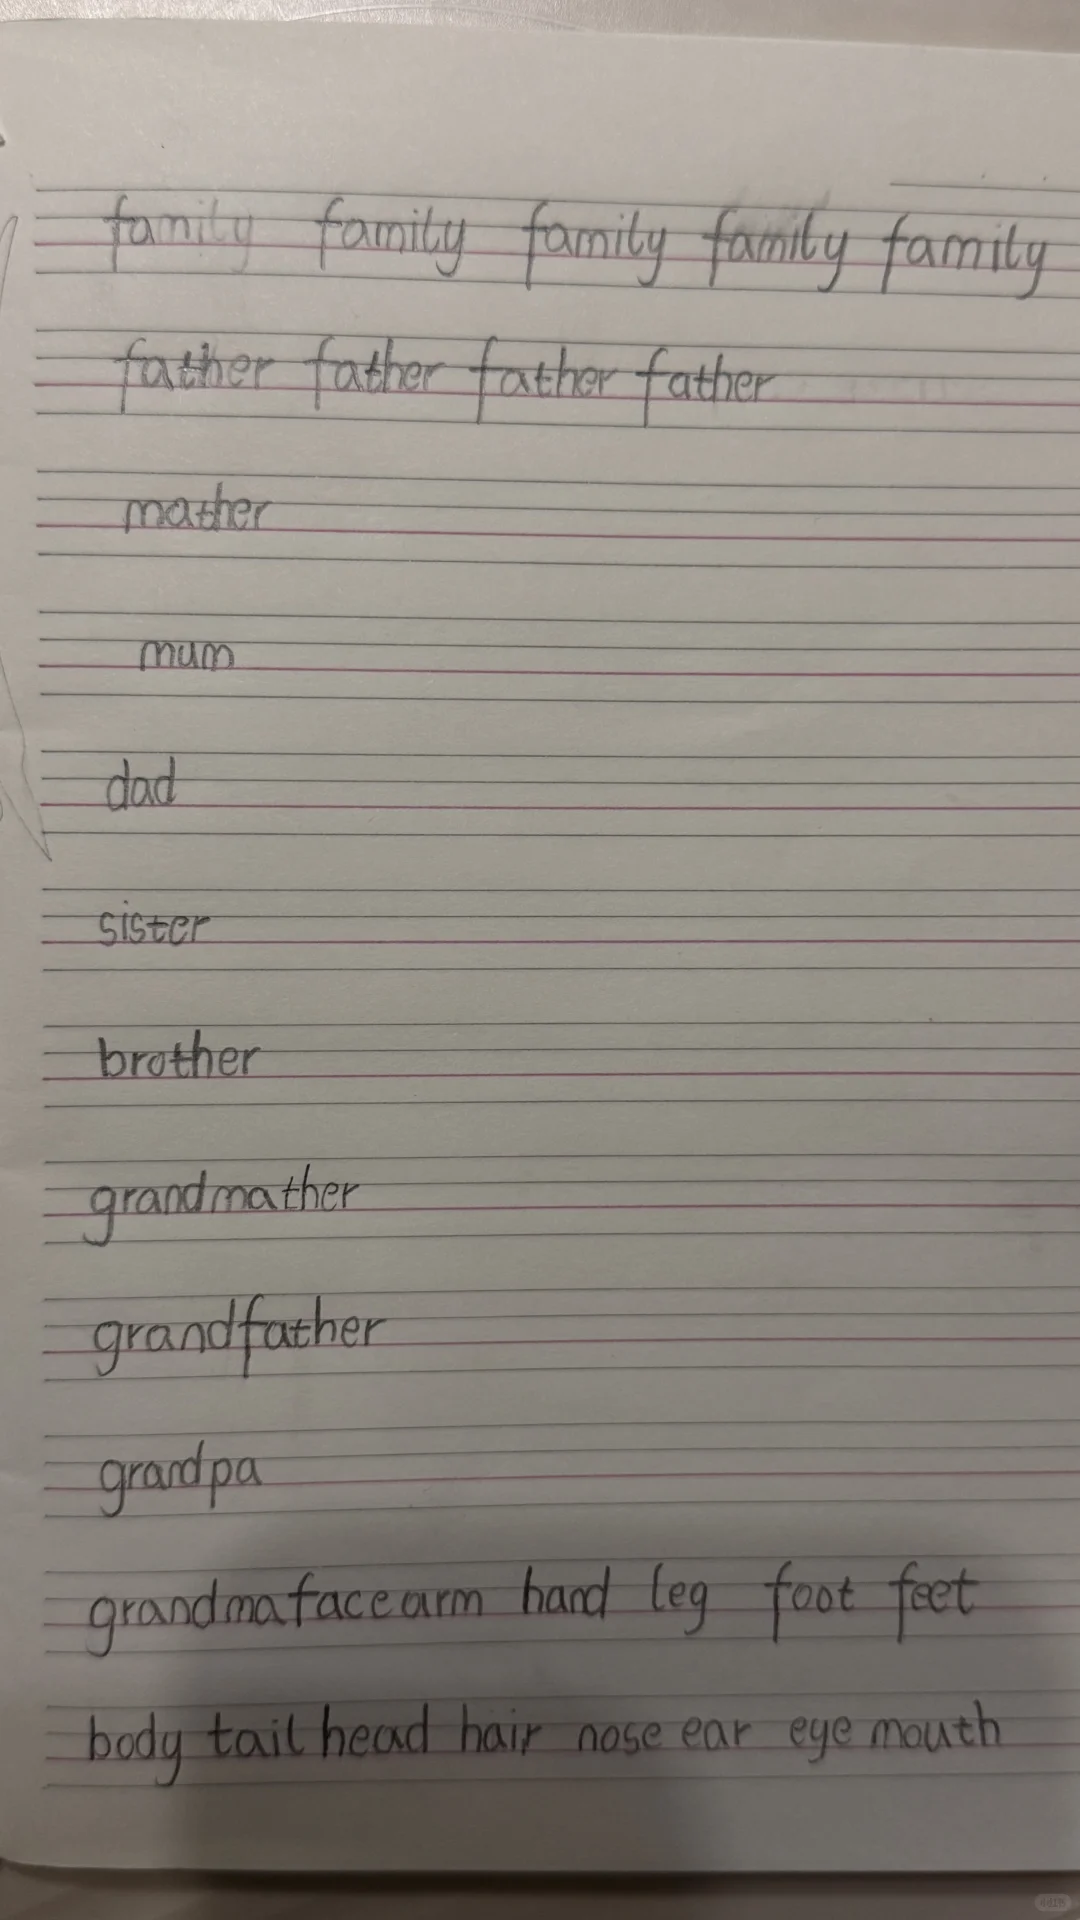 family family family family family
father father father father
mather
mum
dad
sister
brother
grandmather
grandfather
grandpa
grandma face arm hand leg foot feet
body tail head hair nose ear eye mouth